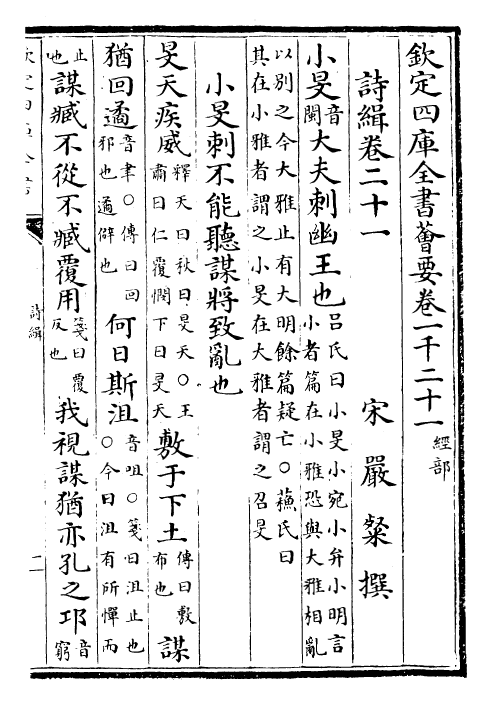 欽定四庫全書薈要卷一千二十一經部
詩緝卷二十一
宋嚴粲撰
小旻音閔大夫刺幽王也呂氏曰小旻小宛小弁小明言小者篇在小雅恐與大雅相亂
以別之今大雅止有大明餘篇疑亡○蘇氏曰其在小雅者謂之小旻在大雅者謂之召旻
小旻刺不能聽謀將致亂也
旻天疾威釋天曰秋曰旻天○王肅曰仁覆憫下曰旻天敷于下土傳曰敷布也謀
猶回遹音聿○傳曰回邪也遹僻也何日斯沮音咀○箋曰沮止也○今日沮有所憚而
止也謀臧不從不臧覆用箋曰覆反也我視謀猶亦孔之邛音窮
欽定四庫全書
詩緝
二